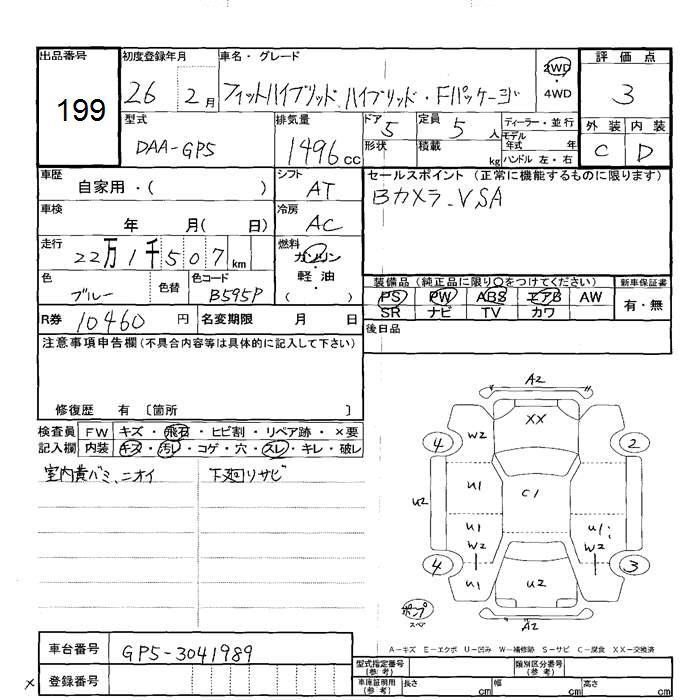 出品番号
199
初度登録年月
26 2月
車名・グレード
フィットハイブリッド ハイブリッド・Fパッケージ
2WD
・
4WD
評価点
3
外装 内装
C D
型式
DAA-GP5
排気量
1496cc
ドア
5
形状
定員
5人
積載
kg
ディーラー・並行
モデル
年式 年
ハンドル 左・右
車歴
自家用・( )
シフト
AT
セールスポイント (正常に機能するものに限ります)
Bカメラ、VSA
車検
年 月( 日)
冷房
AC
走行
22万1千507km
燃料
ガソリン
軽・油
( )
色
ブルー
色替
色コード
B595P
装備品 (純正品に限り○をつけてください)
PS PW ABS エアB AW
SR ナビ TV カワ
新車保証書
有・無
R券 10460円
名変期限 月 日
後日品
注意事項申告欄 (不具合内容等は具体的に記入して下さい)
修復歴 有 〔箇所 〕
検査員
記入欄
FW キズ・飛石・ヒビ割・リペア跡・×要
内装 キズ・汚レ・コゲ・穴・スレ・キレ・破レ
室内黄バミ、ニオイ
下廻リサビ
A2
XX
4
W2
2
U1
C1
U2
U1
W2
U1
W2
4
U1
U2
3
ポンプ
スペア
A2
A-キズ E-エクボ U-凹み W-補修跡 S-サビ C-腐食 XX-交換済
車台番号
GP5-3041989
×
登録番号
型式指定番号
(参考)
類別区分番号
(参考)
車庫証明用
(参考)
長さ cm
幅 cm
高さ cm